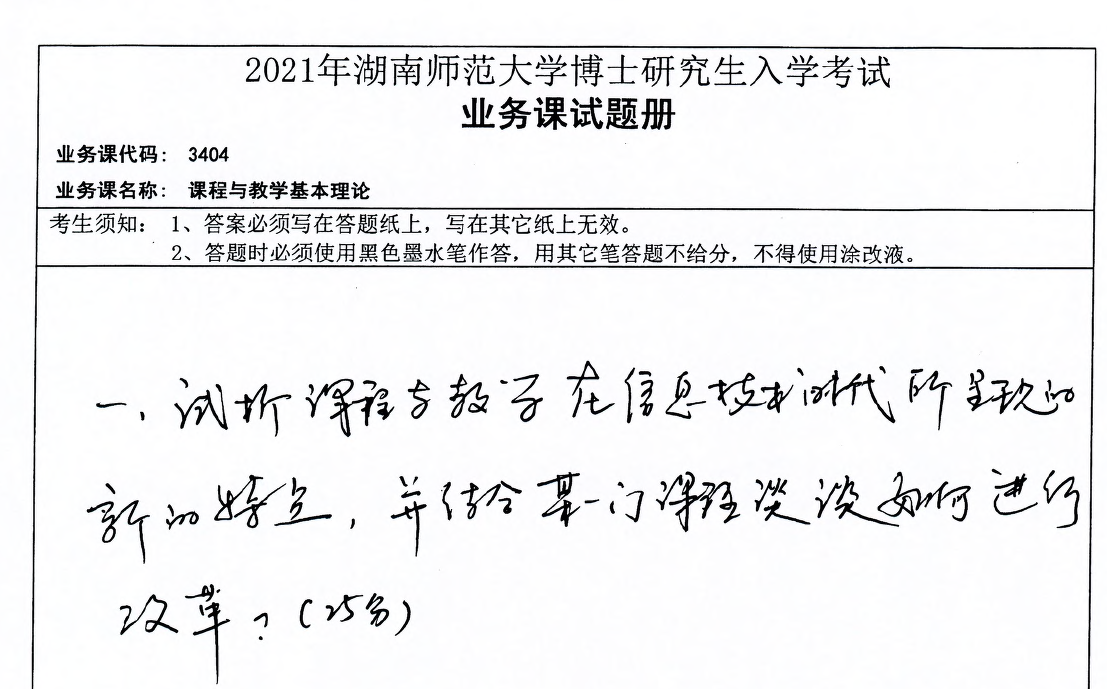 2021年湖南师范大学博士研究生入学考试
业务课试题册
业务课代码： 3404
业务课名称： 课程与教学基本理论
考生须知： 1、答案必须写在答题纸上，写在其它纸上无效。
2、答题时必须使用黑色墨水笔作答，用其它笔答题不给分，不得使用涂改液。
一、试析课程与教学在信息技术时代所呈现的
新的特点，并结合某一门课程谈谈如何进行
改革？（25分）